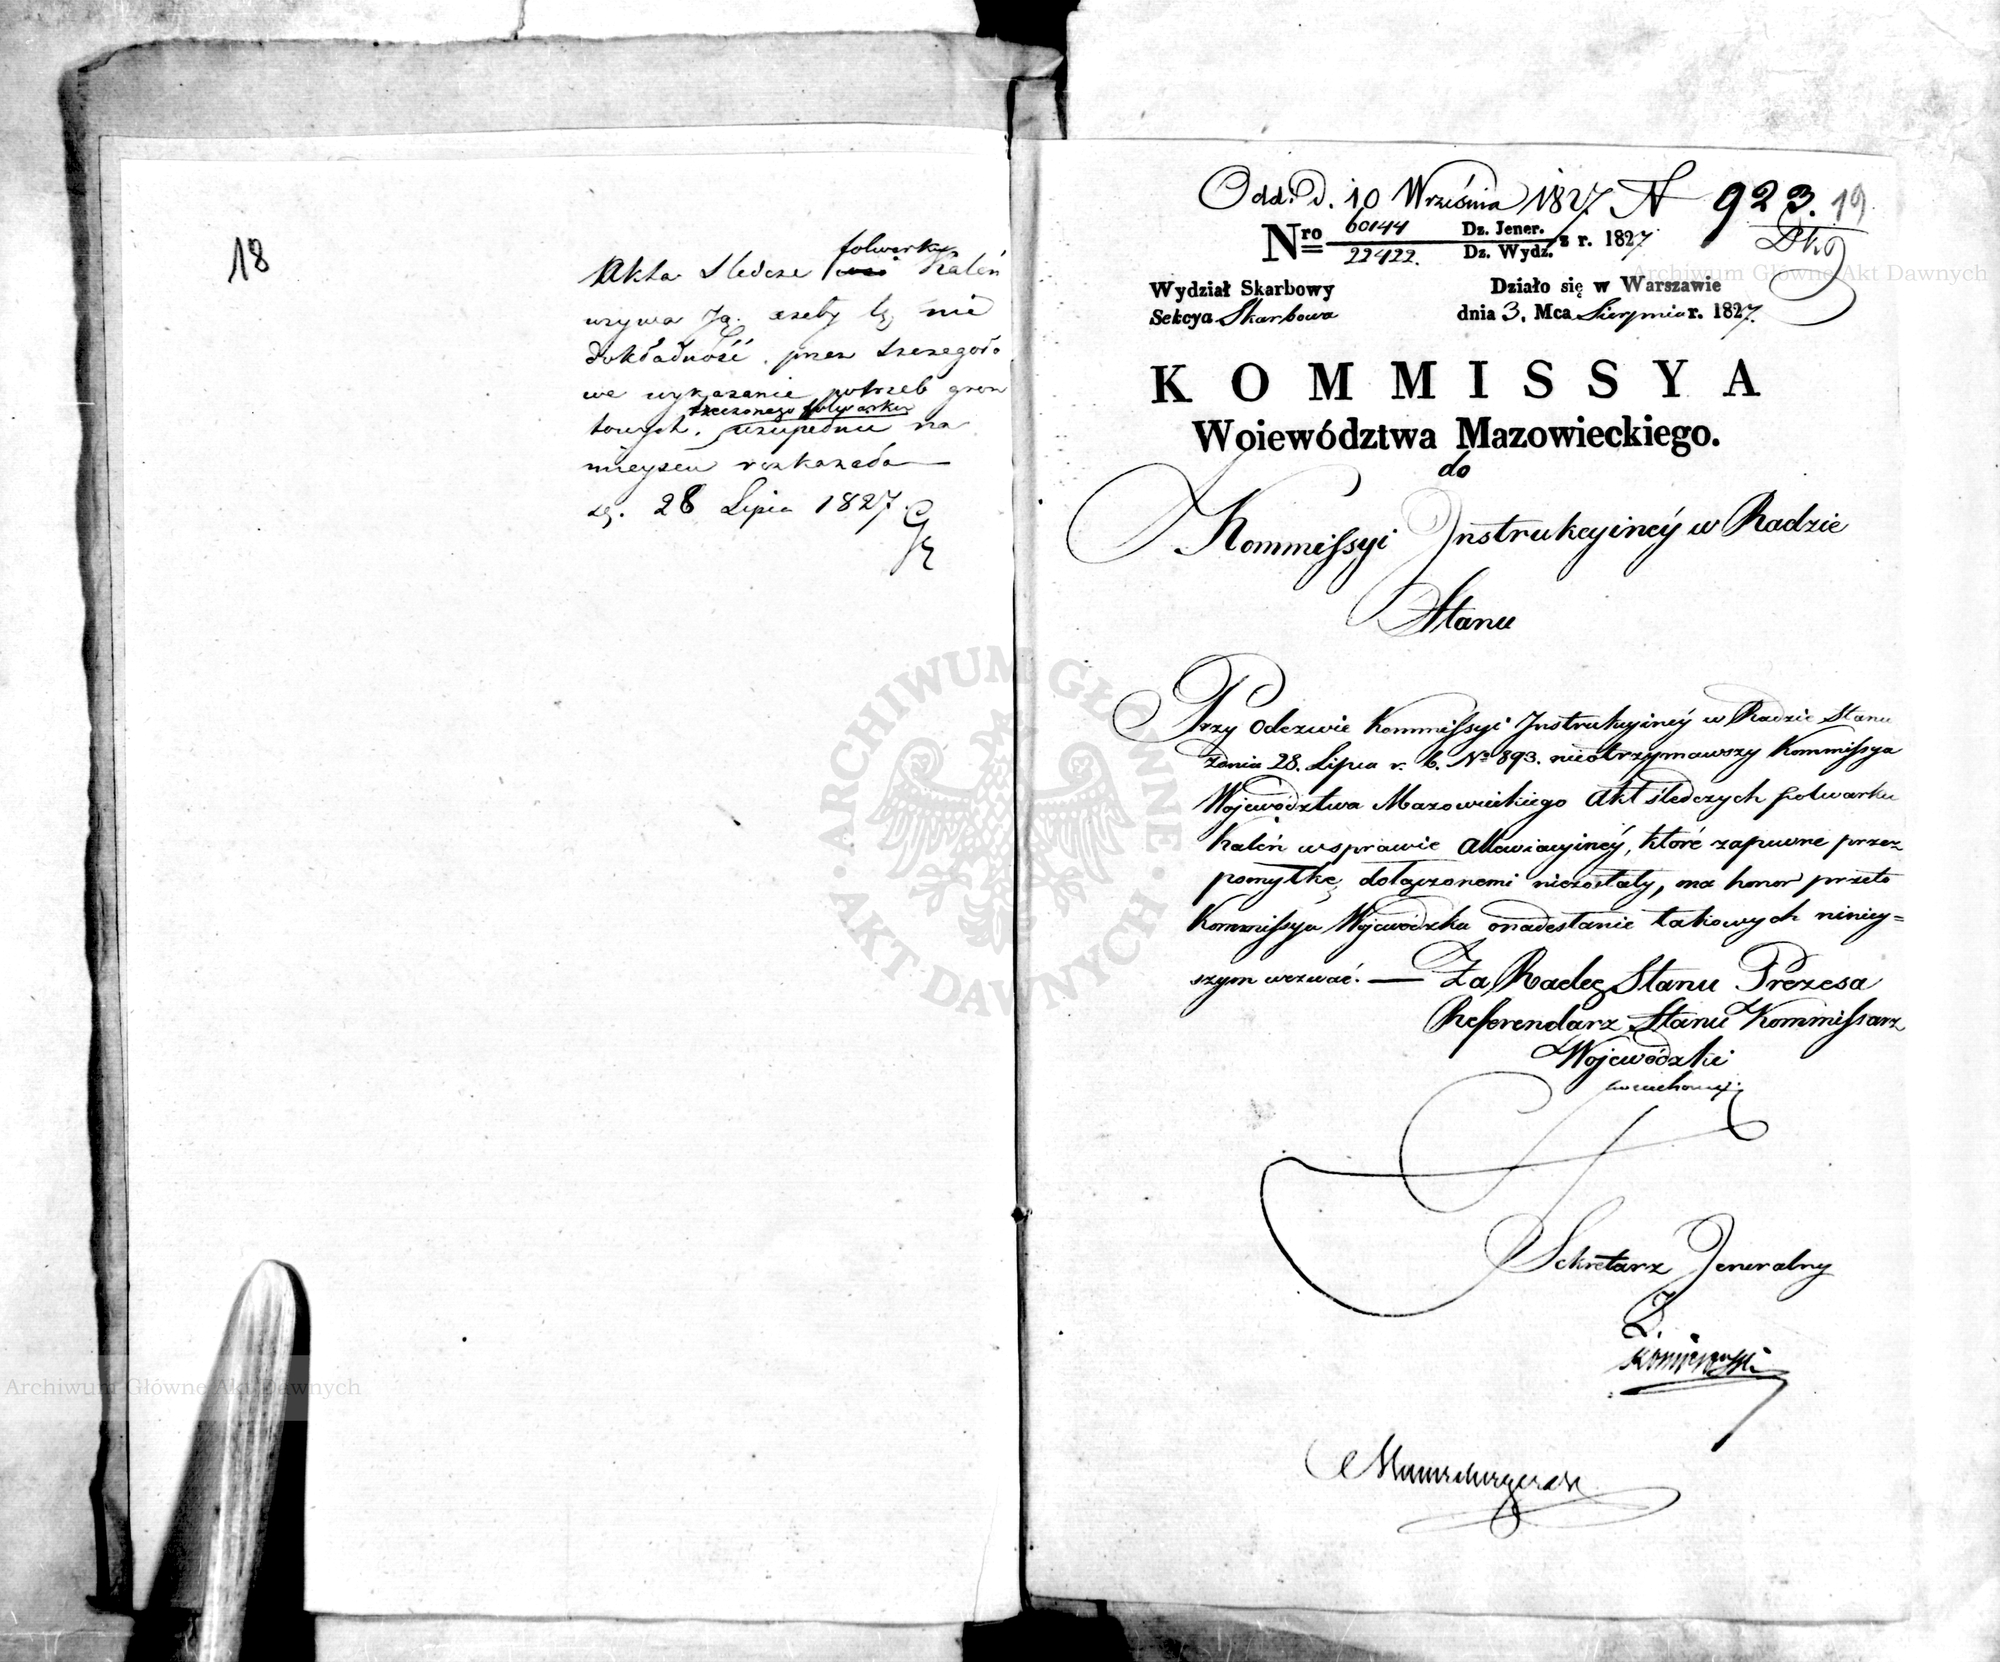 18
folwarku
Akta Sledcze Kaleń
wzywa Ją. ażeby tę nie
dokładność. przez szczegóło
we wykazanie potrzeb gron
rzeczonego folwarku
towych. uzupełnić na
mieyscu rozkazała
28 Lipca 1827
Odd. D. 10 Września 1827. N 923. 19
Nro 60144 Dz. Jener.
22422. Dz. Wydz. z r. 1827
Wydział Skarbowy
Sekcya Skarbowa
Działo się w Warszawie
dnia 3. Mca Sierpnia r. 1827.
KOMMISSYA
Woiewództwa Mazowieckiego.
do
Kommissyi Instrukcyinéy w Radzie
Stanu
Przy odezwie Kommissyi Instrukcyinéy w Radzie Stanu
zdnia 28. Lipca r. b. No 893. nieotrzymawszy Kommissya
Województwa Mazowieckiego Akt śledczych folwarku
Kaleń wsprawie Allewiacyinéy, które zapewne przez
pomyłkę dołączonemi niezostały, ma honor przeto
Kommissya Wojewódzka onadesłanie takowych niniey=
szym wezwać. — Za Radcę Stanu Prezesa
Referendarz Stanu Kommissarz
Wojewódzki
Sekretarz Jeneralny
ARCHIWUM GŁÓWNE
AKT DAWNYCH
Archiwum Główne Akt Dawnych
Archiwum Główne Akt Dawnych